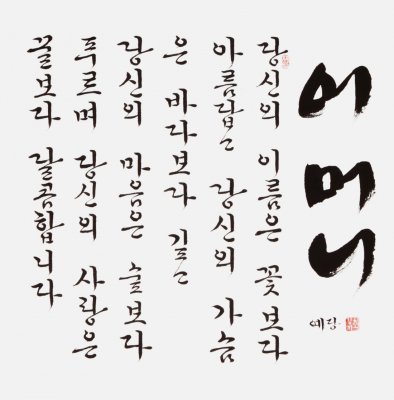 어머니
당신의 이름은 꽃보다
아름답고 당신의 가슴
은 바다보다 깊고
당신의 마음은 숲보다
푸르며 당신의 사랑은
꿀보다 달콤합니다
예당